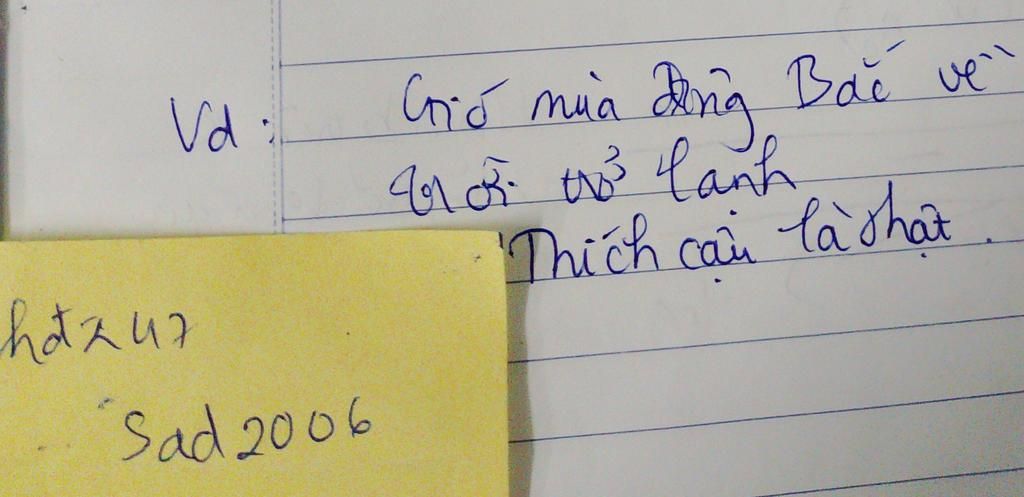 Vd: Gió mùa đông Bắc về
trời trở lạnh
Thích cậu là thật.
hdz47
Sad2006